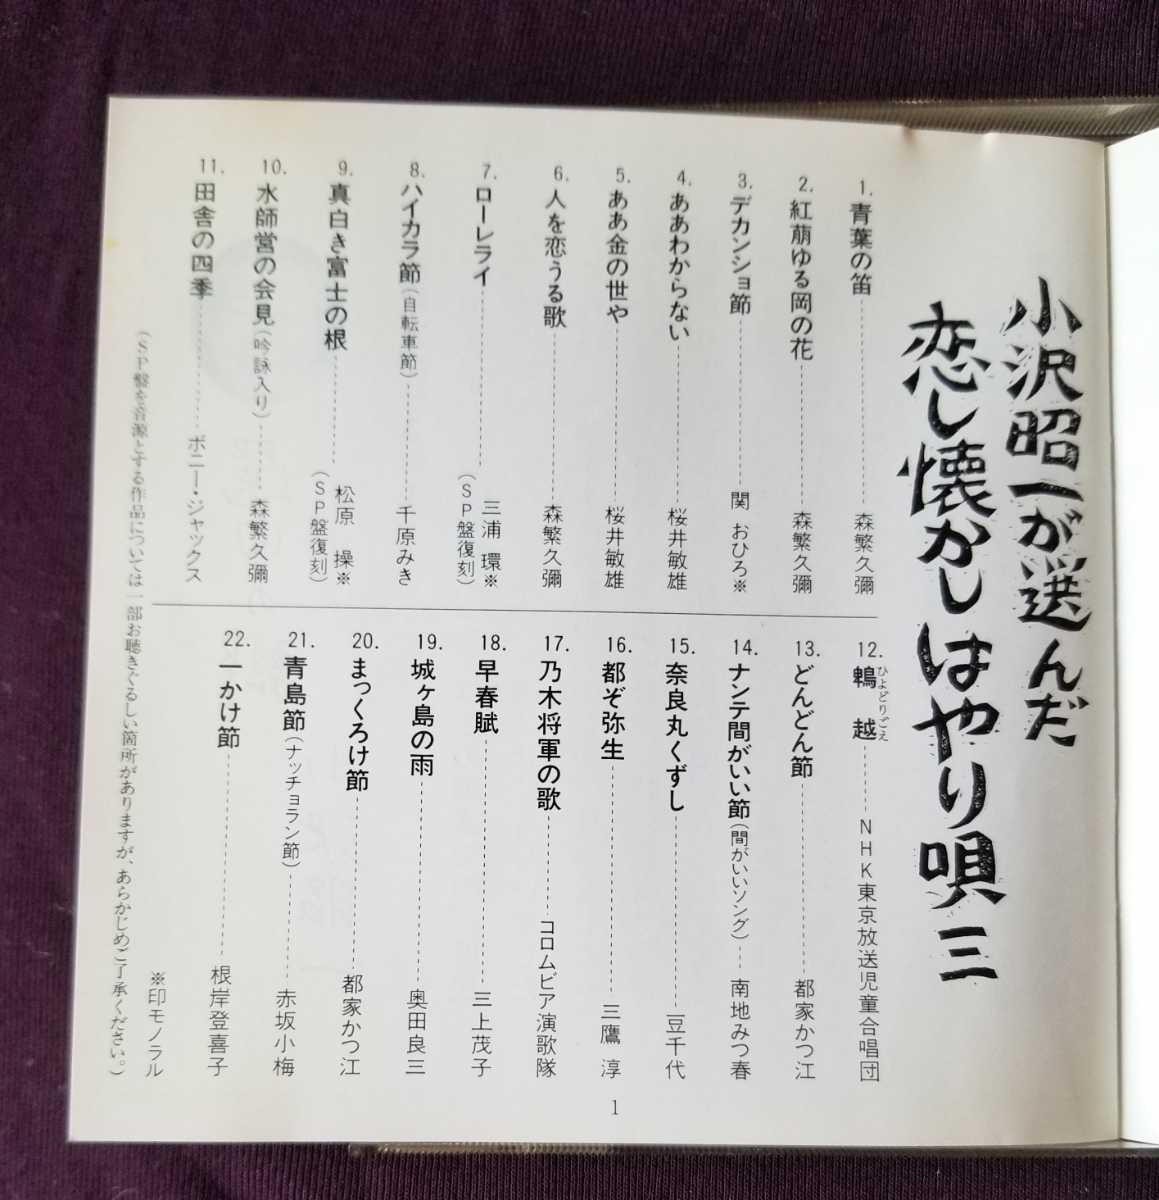 小沢昭一が選んだ
恋し懐かしはやり唄 三
1. 青葉の笛 森繁久彌
2. 紅萠ゆる岡の花 森繁久彌
3. デカンショ節 関 おひろ※
4. ああわからない 桜井敏雄
5. ああ金の世や 桜井敏雄
6. 人を恋うる歌 森繁久彌
7. ローレライ 三浦 環※
(SP盤復刻)
8. ハイカラ節(自転車節) 千原みき
9. 真白き富士の根 松原 操※
(SP盤復刻)
10. 水師営の会見(吟詠入り) 森繁久彌
11. 田舎の四季 ボニー・ジャックス
12. 鵯 越 NHK東京放送児童合唱団
ひよどりごえ
13. どんどん節 都家かつ江
14. ナンテ間がいい節(間がいいソング) 南地みつ春
15. 奈良丸くずし 豆千代
16. 都ぞ弥生 三鷹 淳
17. 乃木将軍の歌 コロムビア演歌隊
18. 早春賦 三上茂子
19. 城ヶ島の雨 奥田良三
20. まっくろけ節 都家かつ江
21. 青島節(ナッチョラン節) 赤坂小梅
22. 一かけ節 根岸登喜子
※印モノラル
(SP盤を音源とする作品については一部お聴きぐるしい箇所がありますが、あらかじめご了承ください。)
1